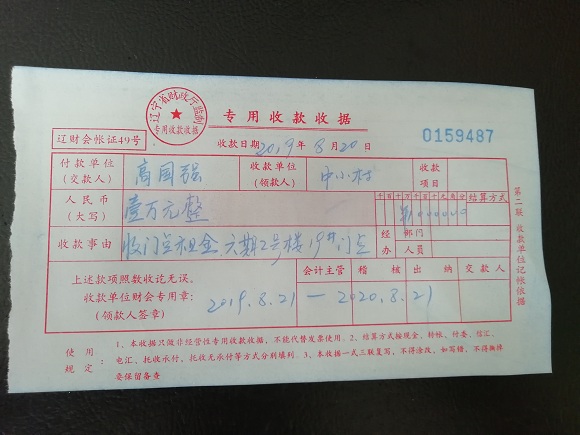 辽宁省财政厅监制
专用收款收据
专用收款收据
收款日期2019年8月20日
0159487
辽财会帐证49号
付款单位
(交款人)
高国强
收款单位
(领款人)
中小村
收款
项目
人民币
(大写)
壹万元整
千百十万千百十元角分
¥1000000
结算方式
收款事由
收门点租金 六期2号楼19#门点
经办
部门
人员
上述款项照数收讫无误。
收款单位财会专用章:
(领款人签章)
会计主管
稽核
出纳
交款人
2019.8.21—2020.8.21
第二联 收款单位记帐依据
使用规定:
1、本收据只做非经营性专用收款收据,不能代替发票使用。2、结算方式按现金、转帐、付委、信汇、
电汇、托收承付、托收无承付等方式分别填列。3、本收据一式三联复写,不得涂改,如写错,不得撕掉
要保留备查